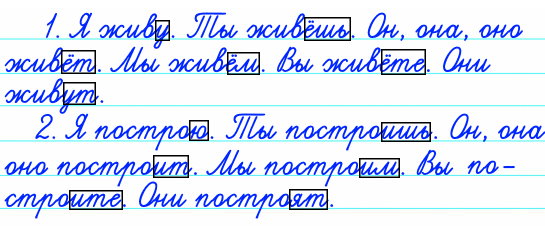 1. Я живу. Ты живёшь. Он, она, оно
живёт. Мы живём. Вы живёте. Они
живут.
2. Я построю. Ты построишь. Он, она
оно построит. Мы построим. Вы по-
строите. Они построят.